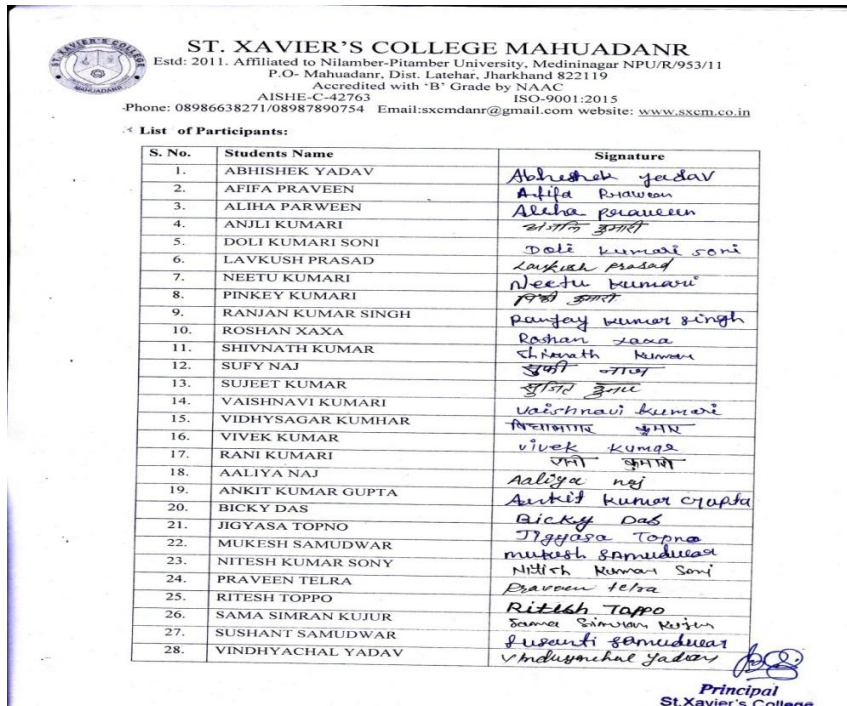 ST. XAVIER'S COLLEGE
MAHUADANR
ST. XAVIER'S COLLEGE MAHUADANR
Estd: 2011. Affiliated to Nilamber-Pitamber University, Medininagar NPU/R/953/11
P.O- Mahuadanr, Dist. Latehar, Jharkhand 822119
Accredited with 'B' Grade by NAAC
AISHE-C-42763 ISO-9001:2015
Phone: 08986638271/08987890754 Email:sxcmdanr@gmail.com website: www.sxcm.co.in
List of Participants:
S. No. Students Name Signature
1. ABHISHEK YADAV Abhishek yadav
2. AFIFA PRAVEEN Afifa
3. ALIHA PARWEEN Aliha
4. ANJLI KUMARI अंजलि कुमारी
5. DOLI KUMARI SONI Doli kumari soni
6. LAVKUSH PRASAD Lavkush prasad
7. NEETU KUMARI Neetu kumari
8. PINKEY KUMARI कुमारी
9. RANJAN KUMAR SINGH kumar singh
10. ROSHAN XAXA Roshan xaxa
11. SHIVNATH KUMAR Shivnath kumar
12. SUFY NAJ नाज
13. SUJEET KUMAR
14. VAISHNAVI KUMARI vaishnavi kumari
15. VIDHYSAGAR KUMHAR
16. VIVEK KUMAR vivek kumar
17. RANI KUMARI
18. AALIYA NAJ Aaliya naj
19. ANKIT KUMAR GUPTA Ankit kumar Gupta
20. BICKY DAS Bicky Das
21. JIGYASA TOPNO Jigyasa Topno
22. MUKESH SAMUDWAR mukesh
23. NITESH KUMAR SONY Nitish Kumar Soni
24. PRAVEEN TELRA Praveen telra
25. RITESH TOPPO Ritesh Toppo
26. SAMA SIMRAN KUJUR Sama Simran Kujur
27. SUSHANT SAMUDWAR
28. VINDHYACHAL YADAV Yadav
Principal
St.Xavier's College